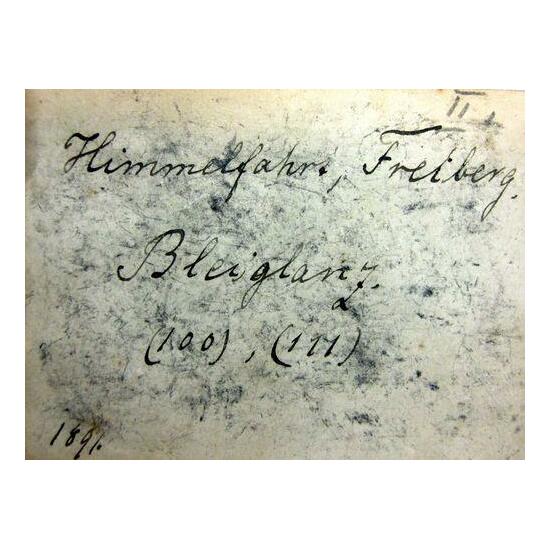 II
Himmelfahrt, Freiberg.
Bleiglanz.
(100), (111)
1891.